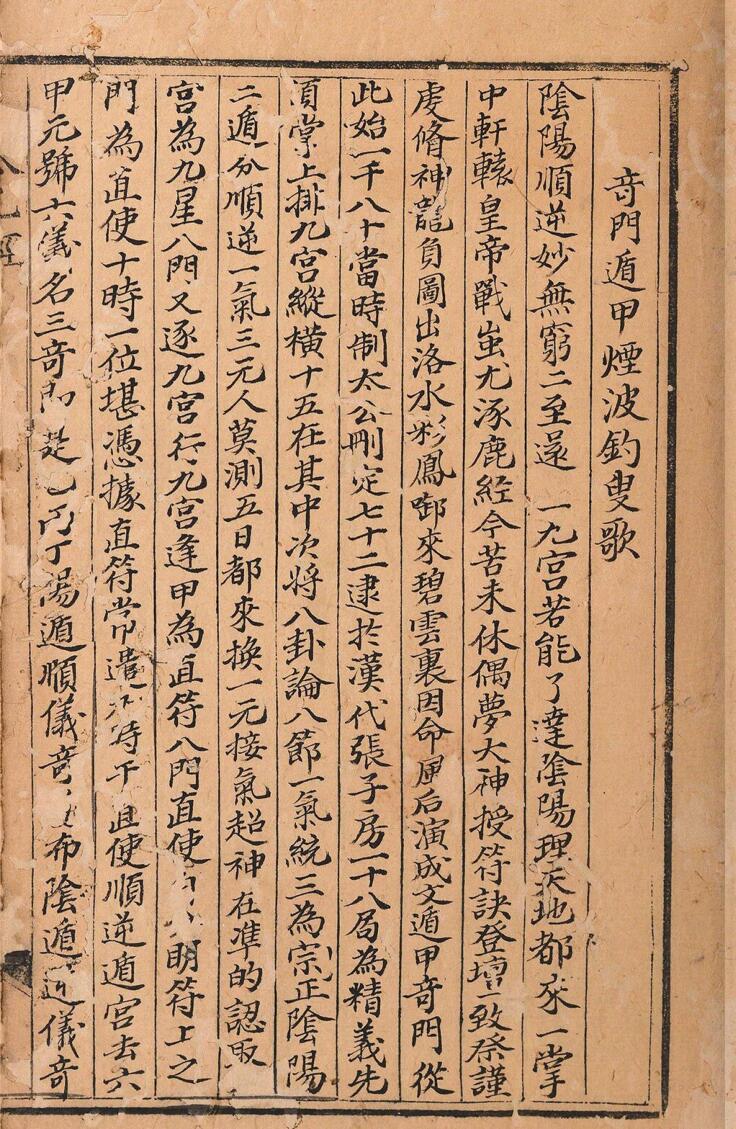 奇門遁甲煙波釣叟歌
陰陽順逆妙無窮二至還一九宮若能了達陰陽理天地都來一掌
中軒轅皇帝戰蚩尤涿鹿經今苦未休偶夢大神授符訣登壇一致祭謹
虔脩神龍負圖出洛水彩鳳啣來碧雲裏因命風后演成文遁甲奇門從
此始一千八十當時制太公刪定七十二逮於漢代張子房一十八局為精義先
須掌上排九宮縱橫十五在其中次將八卦論八節一氣統三為宗正陰陽
二遁分順逆一氣三元人莫測五日都來換一元接氣超神在準的認取
宮為九星八門又逐九宮行九宮逢甲為直符八門直使明符上之
門為直使十時一位堪憑據直符常遣時干直使順逆遁宮去六
甲元號六儀名三奇即是乙丙丁陽遁順儀奇布陰遁逆儀奇